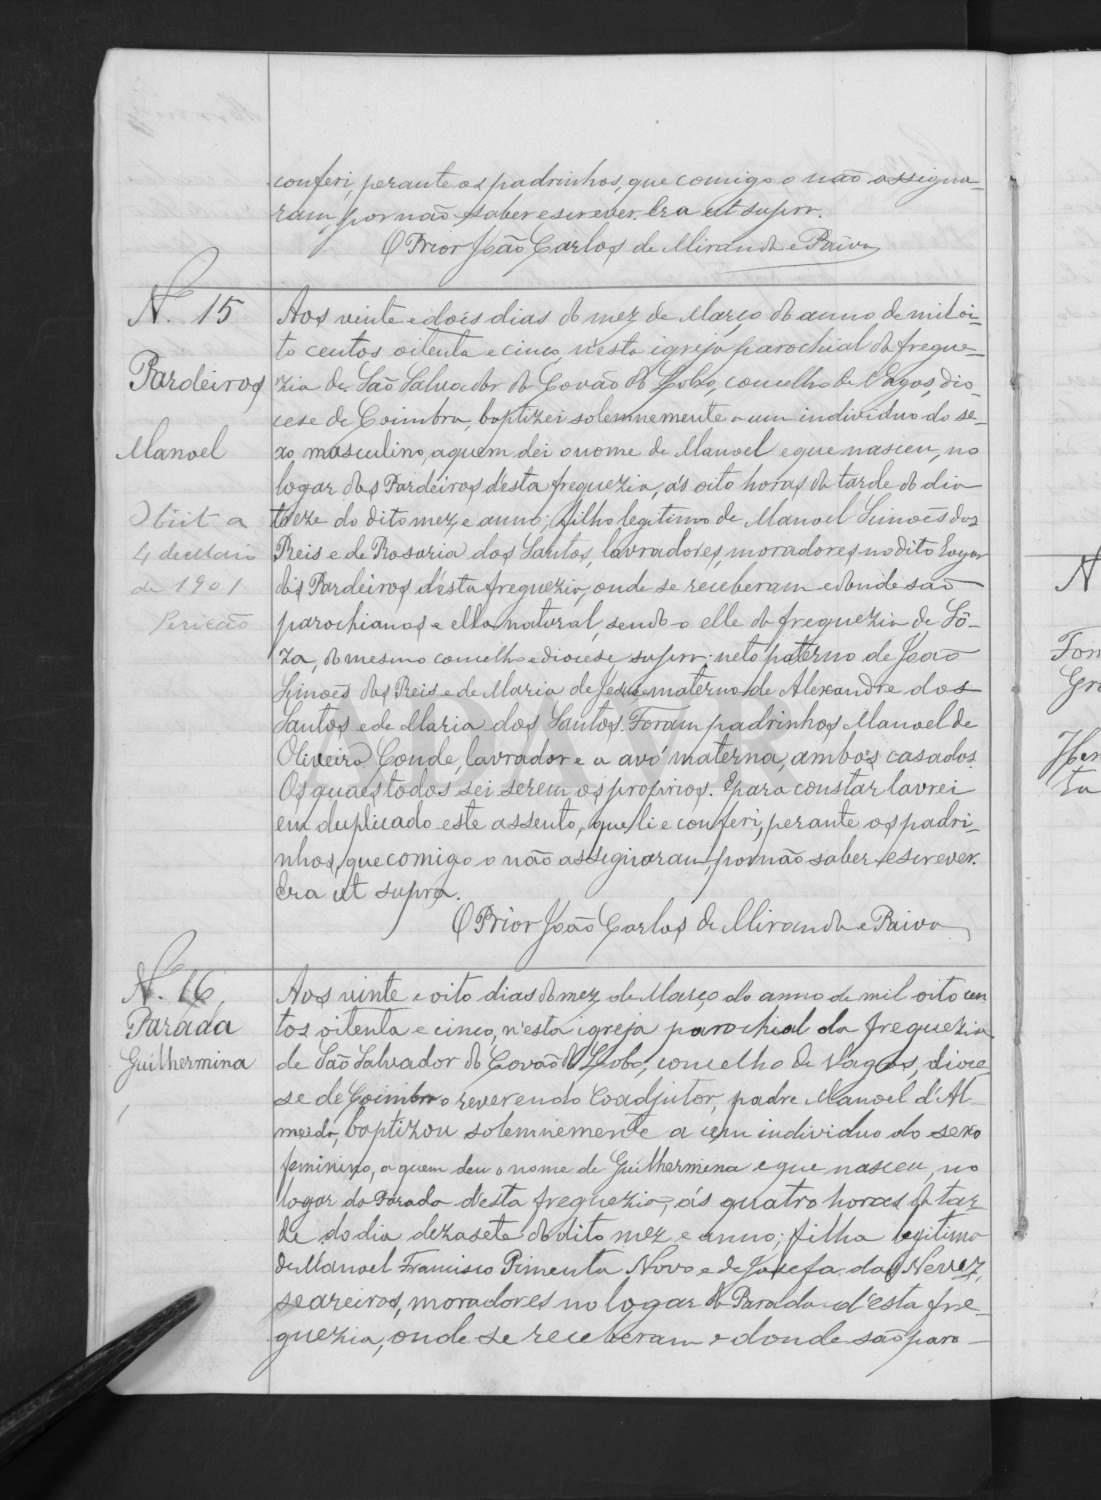 conferi, perante os padrinhos, que comigo o não assigna-
ram, por não saber escrever. Era ut supra.
O Prior João Carlos de Miranda e Paiva
N. 15
Pardeiros
Manoel
Obiit a
4 de Maio
de 1901
Aos vinte e dois dias do mez de Março do anno de mil oi-
to centos oitenta e cinco, n'esta igreja parochial da fregue-
zia de São Salvador do Covão do Lobo, concelho de Vagos, dio
cese de Coimbra, baptizei solemnemente a um individuo do se-
xo masculino, a quem dei o nome de Manoel e que nasceu, no
logar dos Pardeiros d'esta freguezia, ás oito horas da tarde do dia
treze do dito mez e anno; filho legitimo de Manoel Simoẽs dos
Reis e de Rosaria dos Santos, lavradores, moradores, no dito Logar
dos Pardeiros d'esta freguezia, onde se receberam e donde são
parochianos e ella natural, sendo-o elle da freguezia de Sô-
za, do mesmo concelho e diocese supra; neto paterno de João
Simoẽs dos Reis e de Maria de Jesus e materno de Alexandre dos
Santos e de Maria dos Santos. Foram padrinhos Manoel de
Oliveira Conde, lavrador e a avó materna, ambos casados.
Os quaes todos sei serem os proprios. E para constar lavrei
em duplicado este assento, que li e conferi, perante os padri-
nhos, que comigo o não assignaram, por não saber escrever.
Era ut supra.
O Prior João Carlos de Miranda e Paiva
N. 16
Parada
Guilhermina
Aos vinte e oito dias do mez de Março do anno de mil oito cen
tos oitenta e cinco, n'esta igreja parochial da freguezia
de São Salvador do Covão do Lobo, concelho de Vagos, dioce-
se de Coimbra o reverendo Coadjutor, padre Manoel d'Al-
meida, baptizou solemnemente a um individuo do sexo
feminino, a quem deu o nome de Guilhermina e que nasceu, no
logar da Parada d'esta freguezia, ás quatro horas da tar
de do dia dezasete do dito mez e anno; filha legitima
de Manoel Francisco Pimenta Novo e de Josefa das Neves,
seareiros, moradores no logar da Parada d'esta fre-
guezia, onde se receberam e donde são paro-
ADAVR
N